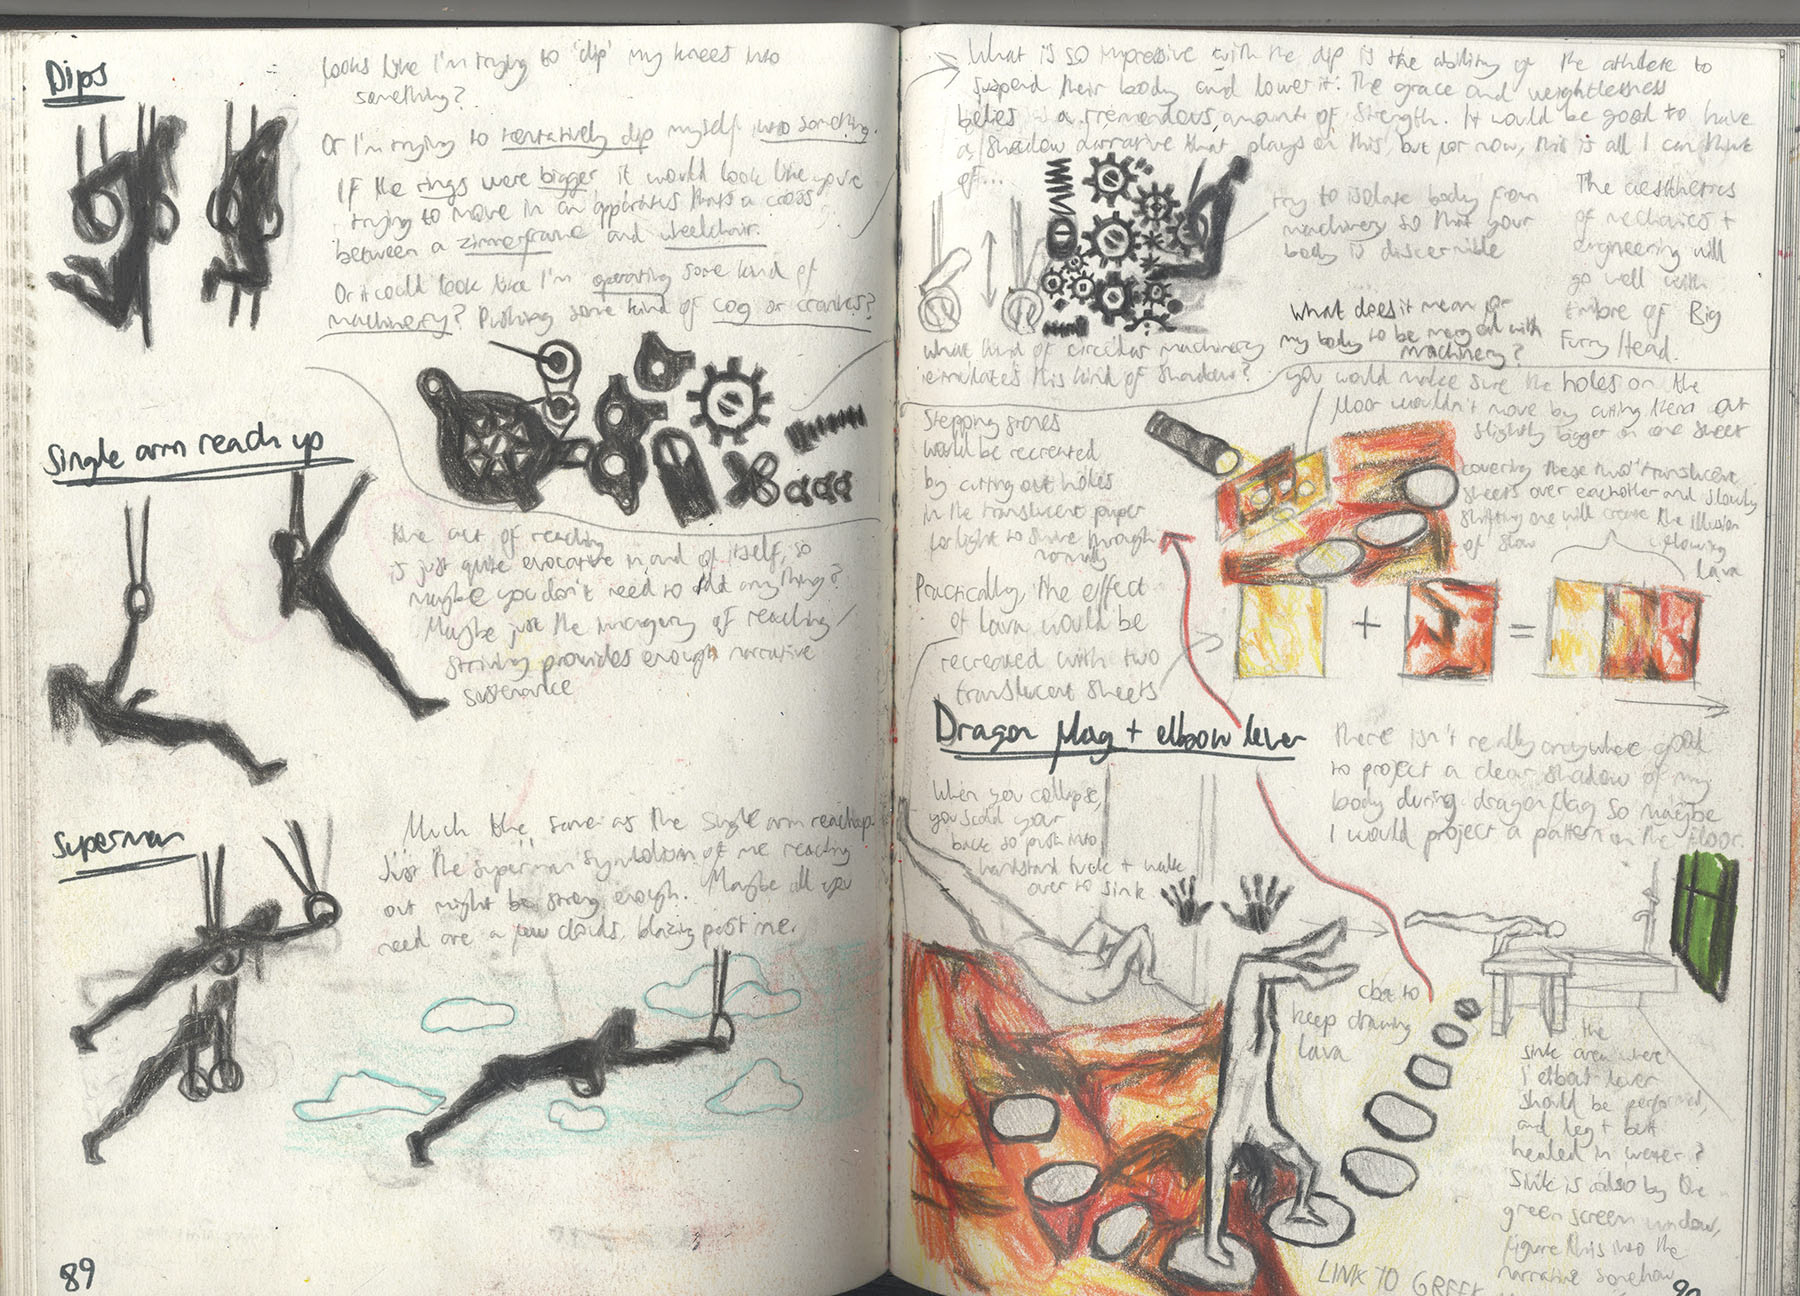 Dips
looks like I'm trying to 'dip' my knees into
something?
Or I'm trying to tentatively dip myself into something.
If the rings were bigger it would look like you're
trying to move in an apparatus thats a cross
between a zimmerframe and wheelchair.
Or it could look like I'm operating some kind of
machinery? Pushing some kind of cog or cranks?
Single arm reach up
the act of reaching
is just quite evocative in and of itself, so
maybe you don't need to add anything?
Maybe just the imagery of reaching/
striving provides enough narrative
sustenance
Superman
Much the same as the single arm reach up.
Just the superman symbolism of me reaching
out might be strong enough. Maybe all you
need are a few clouds blazing past me.
89
What is so impressive with the dip is the ability of the athlete to
suspend their body and lower it. The grace and weightlessness
belies a tremendous amount of strength. It would be good to have
a shadow narrative that plays on this, but for now, this is all I can think
of...
try to isolate body from
machinery so that your
body is discernible
The aesthetics
of mechanics +
engineering will
go well with
timbre of Big
Furry Head.
What does it mean for
my body to be merged with
machinery?
what kind of circular machinery
emulates this kind of shadow?
you would make sure the holes on the
floor wouldn't move by cutting them out
slightly bigger on one sheet
Stepping stones
would be recreated
by cutting out holes
in the translucent paper
for light to shine through
normally
covering these two translucent
sheets over eachother and slowly
shifting one will create the illusion
of slow
flowing
lava
Practically, the effect
of lava would be
recreated with two
translucent sheets
+ =
Dragon flag + elbow lever
There isn't really anywhere good
to project a clear shadow of my
body during dragon flag so maybe
I would project a pattern on the floor.
When you collapse,
you scald your
back so push into
handstand tuck + walk
over to sink
cba to
keep drawing
lava
the
sink area where
elbow lever
should be performed,
and leg + butt
healed in water?
Sink is also by the
green screen window,
figure this into the
narrative somehow
LINK TO GREEK
90